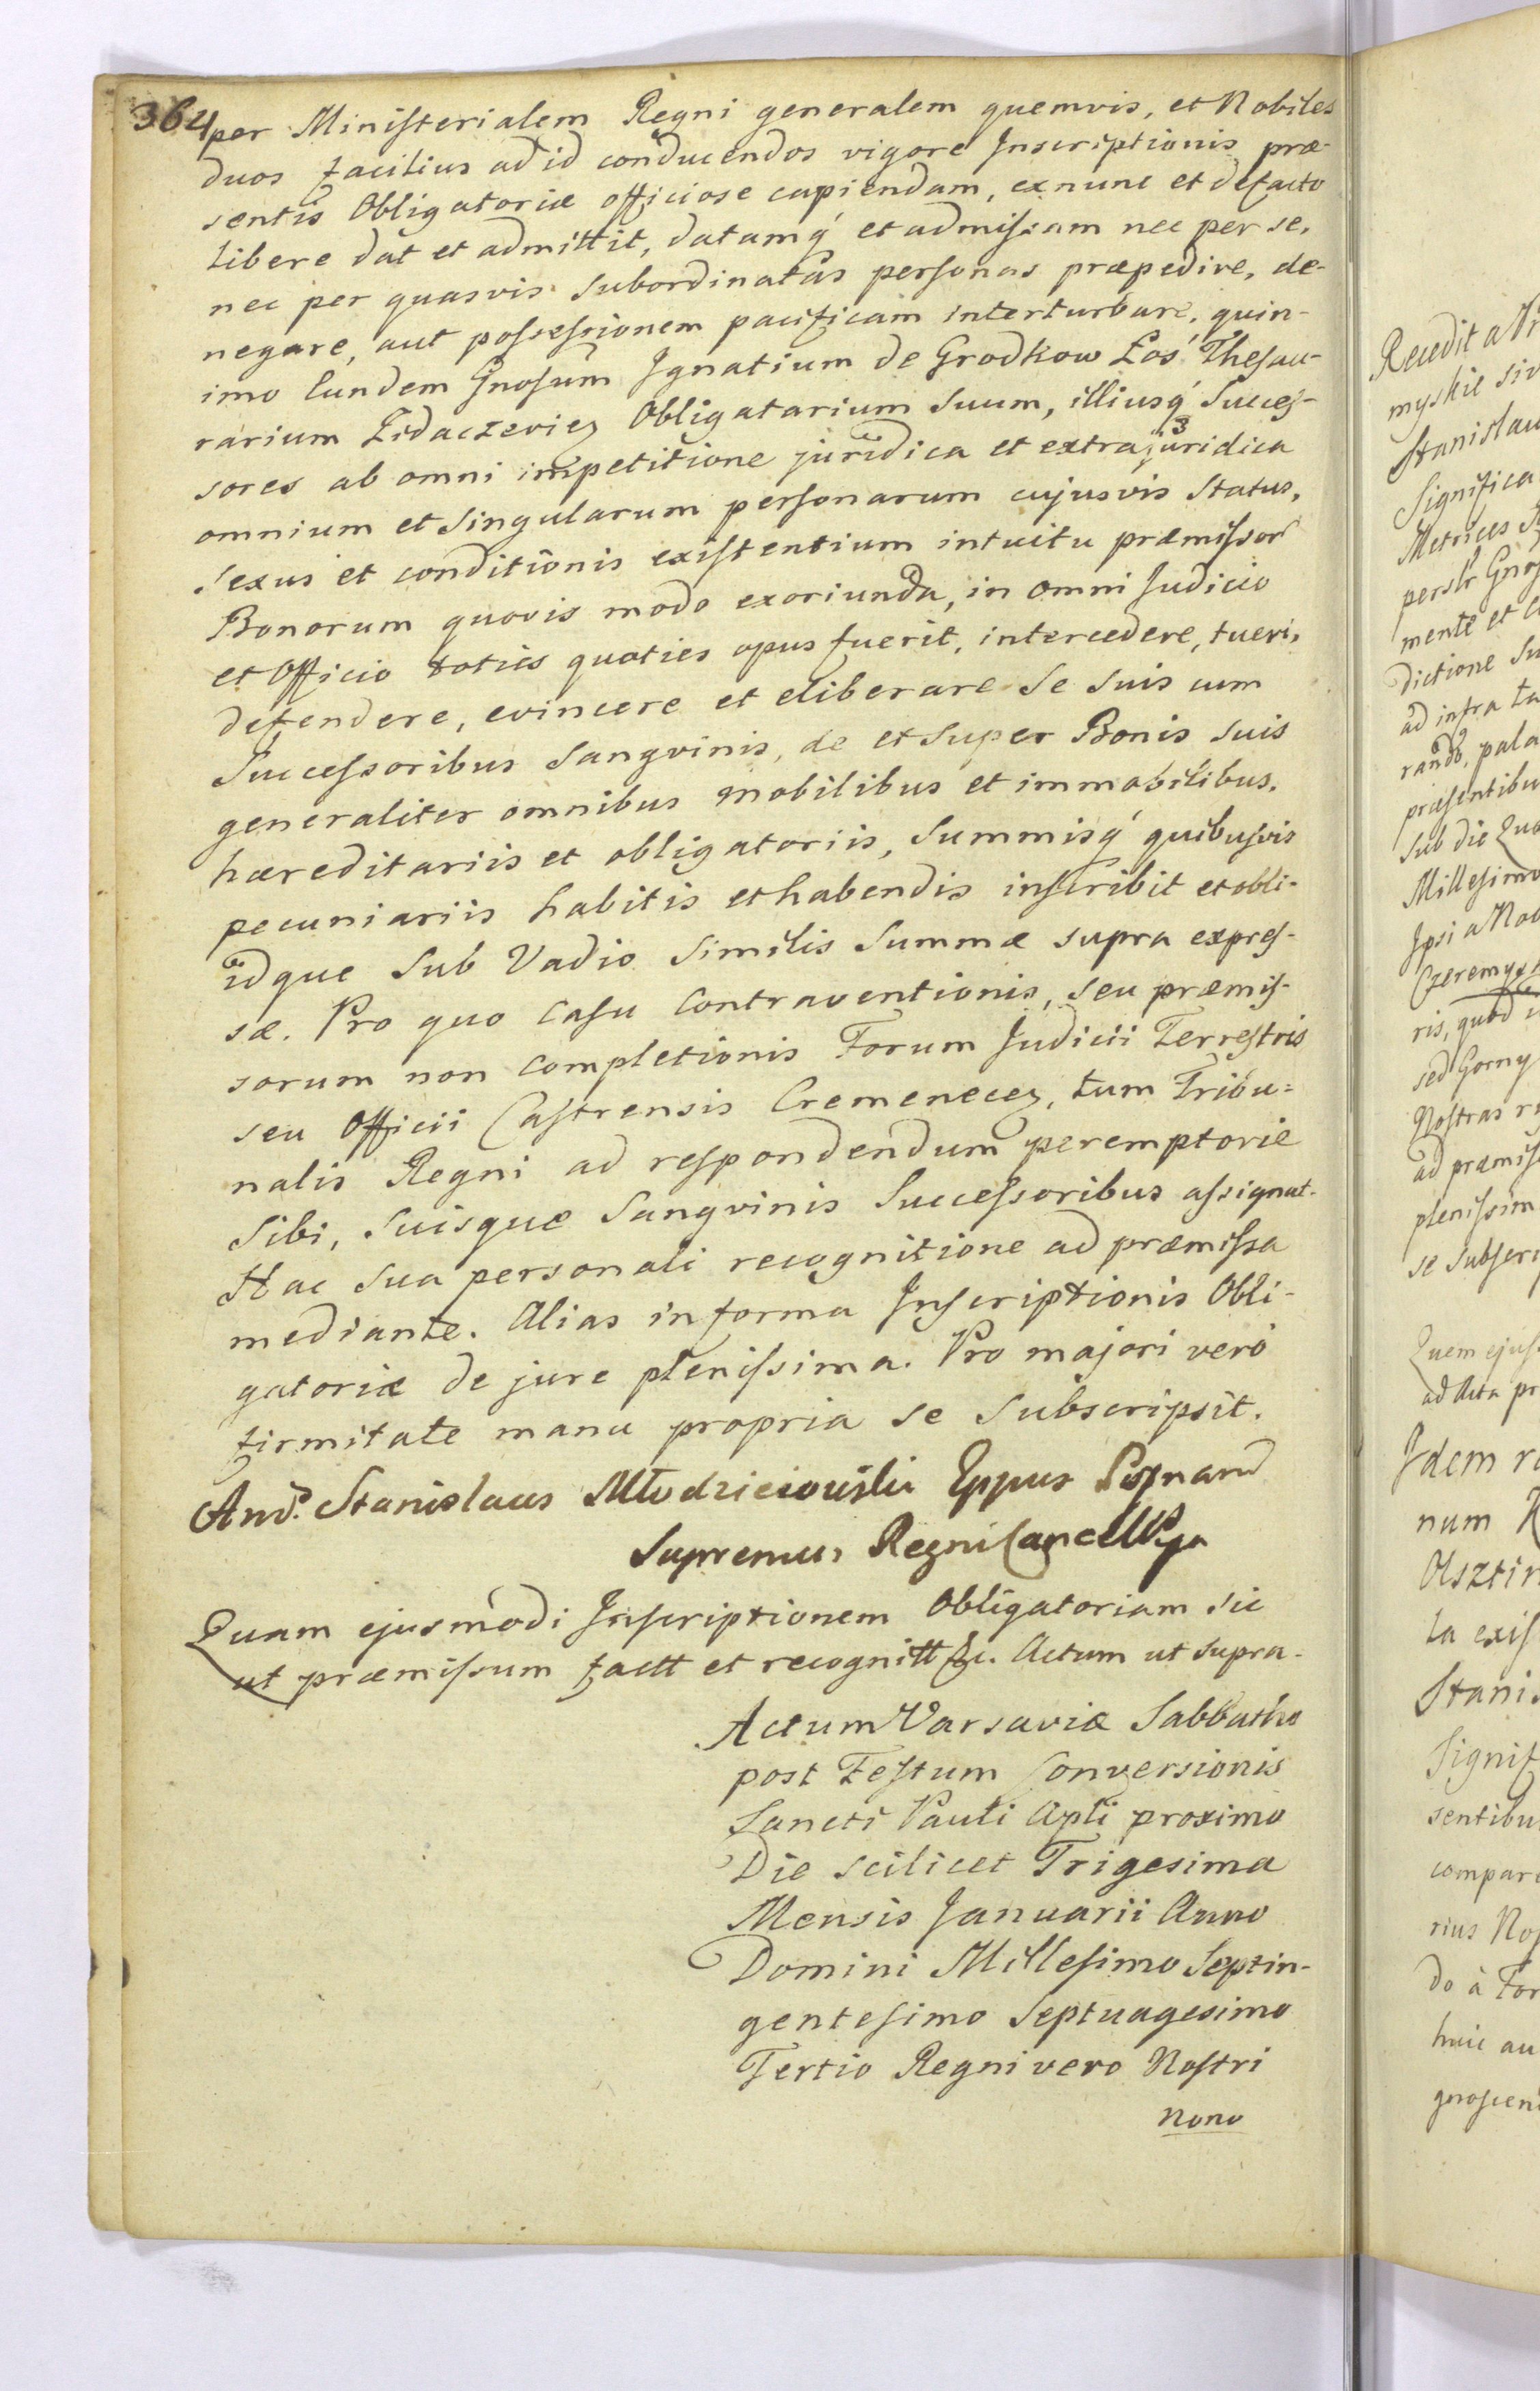 364
per Ministerialem Regni generalem quemvis, et Nobiles
duos facilius ad id conducendos vigore Inscriptionis præ-
sentis Obligatoriæ officiose capiendam, ex nunc et defacto
libere dat et admittit, datamq́ et admissam nec per se,
nec per quasvis subordinatas personas præpedire, de-
negare, aut possessionem pacificam interturbare, quin-
imo Eundem Gnosum Ignatium de Grodkow Łoś Thesau-
rarium Zidaczeviez Obligatarium Suum, illiusq́ Succes-
sores ab omni impetitione juridica et extrajuridica
omnium et Singularum personarum cujusvis Status,
Sexus et conditionis existentium intuitu præmissor
Bonorum quovis modo exoriunda, in omni Judicio
et Officio toties quoties opus fuerit, intercedere, tueri,
defendere, evincere et eliberare Se Suis cum
Successoribus Sangvinis, de et Super Bonis Suis
generaliter omnibus mobilibus et immobilibus,
hæreditariis et obligatoriis, Summisq́ quibusvis
pecuniariis habitis et habendis inscribit et obli-
idque Sub Vadio Similis Summæ supra expres-
sæ. Pro quo Casu Contraventionis, seu præmis-
sorum non completionis Forum Judicii Terrestris
seu Officii Castrensis Cremenecez, tum Tribu=
nalis Regni ad respondendum peremptorie
Sibi, Suisque Sangvinis Successoribus assignat.
Hac Sua personali recognitione ad præmissa
mediante. Alias in forma Inscriptionis Obli-
gatoriæ de jure plenissima. Pro majori verò
firmitate manu propria se Subscripsit.
And. Stanislaus Młodzieiouski Eppus Poznan
Supremus Regni Cancell
Quam ejusmodi Inscriptionem Obligatoriam sic
ut præmissum factt et recognitt &c. Actum ut supra.
Actum Varsaviæ Sabbatho
post Festum Conversionis
Sancti Pauli Apli proximo
Die scilicet Trigesima
Mensis Januarii Anno
Domini Millesimo Septin-
gentesimo Septuagesimo
Tertio Regni vero Nostri
nono
Recedit a
myskie
Stanislau
Significa
Metrices
mente et
dictione Su
ad infra
præsentibu
Sub die
Millesimo
Ipsi a
ris, quod
sed Gorny
Nostras
ad præmiss
plenissim
se Subscri
Quem ejus
ad Acta pr
Idem
num
Olsztin
ta exis
Stanis
Signif
sentibu
compare
rius Nos
do à For
huic au
gnoscen